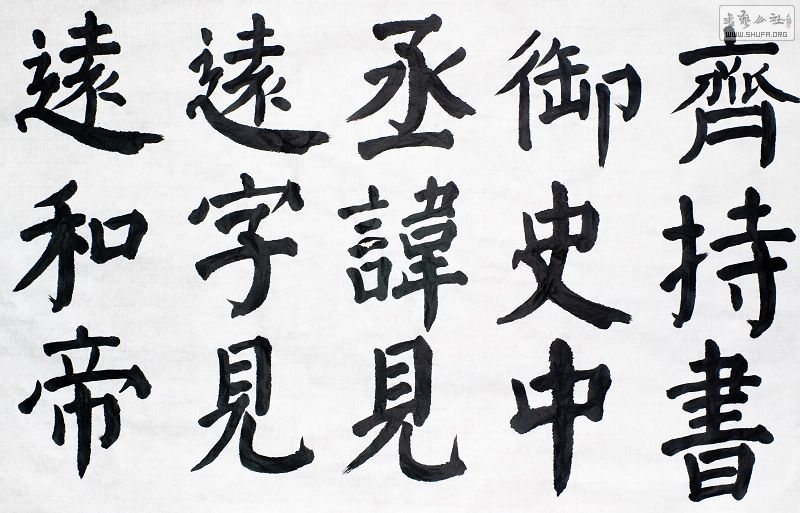 齊持書
御史中
丞諱見
遠字見
遠和帝
书艺公社
WWW.SHUFA.ORG